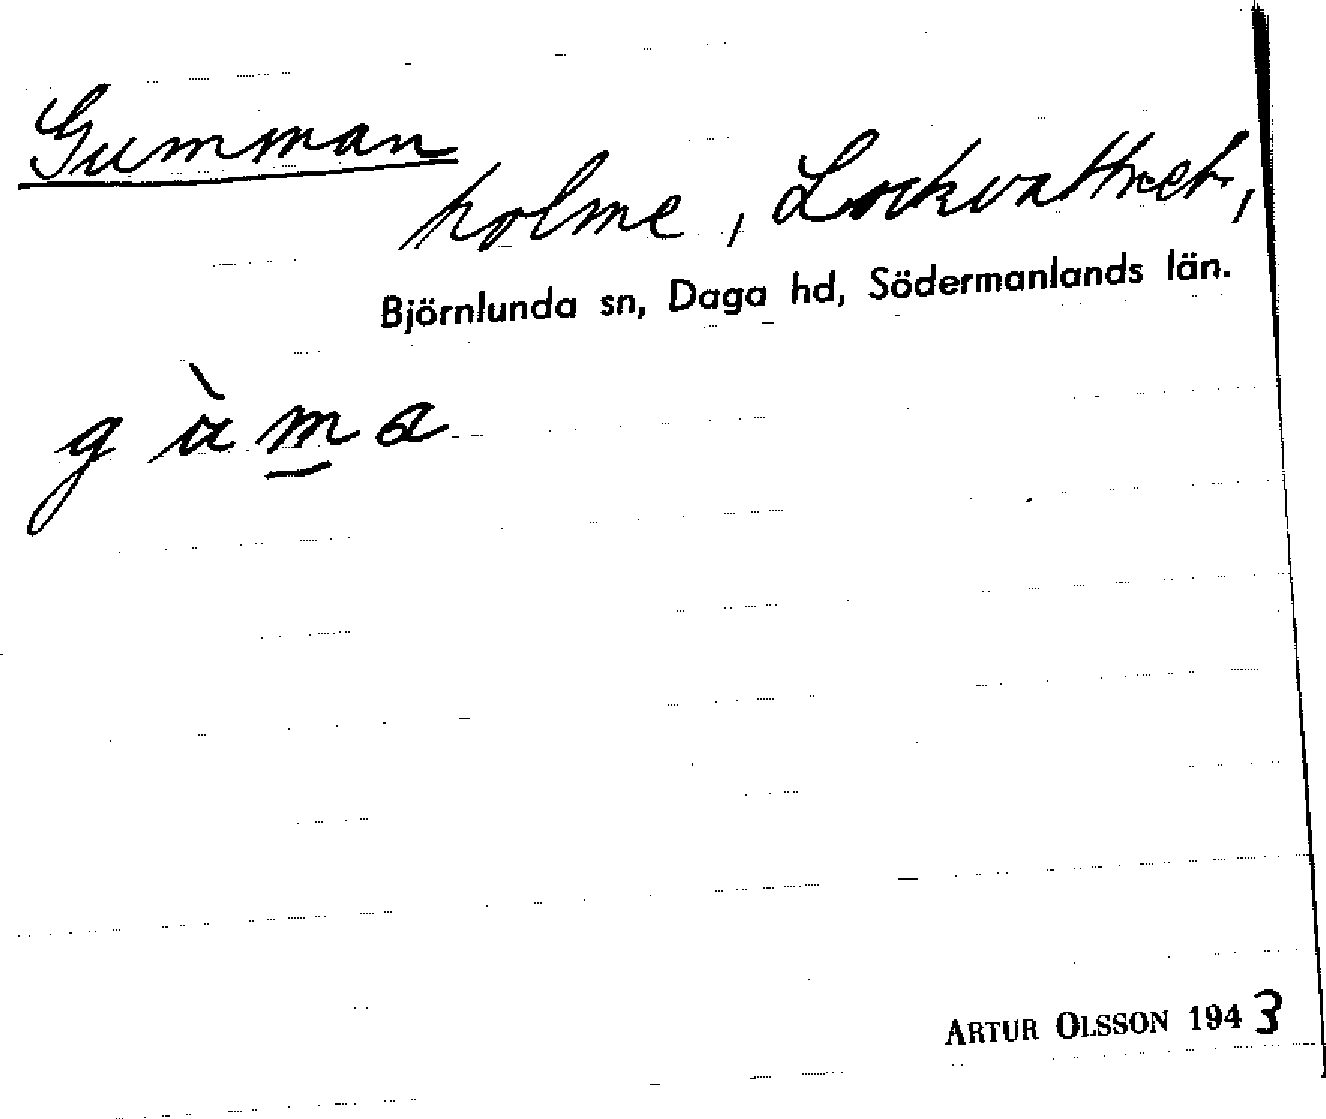 Gumman
holme, Lockvattnet,
Björnlunda sn, Daga hd, Södermanlands län.
g ù m a
ARTUR OLSSON 1943